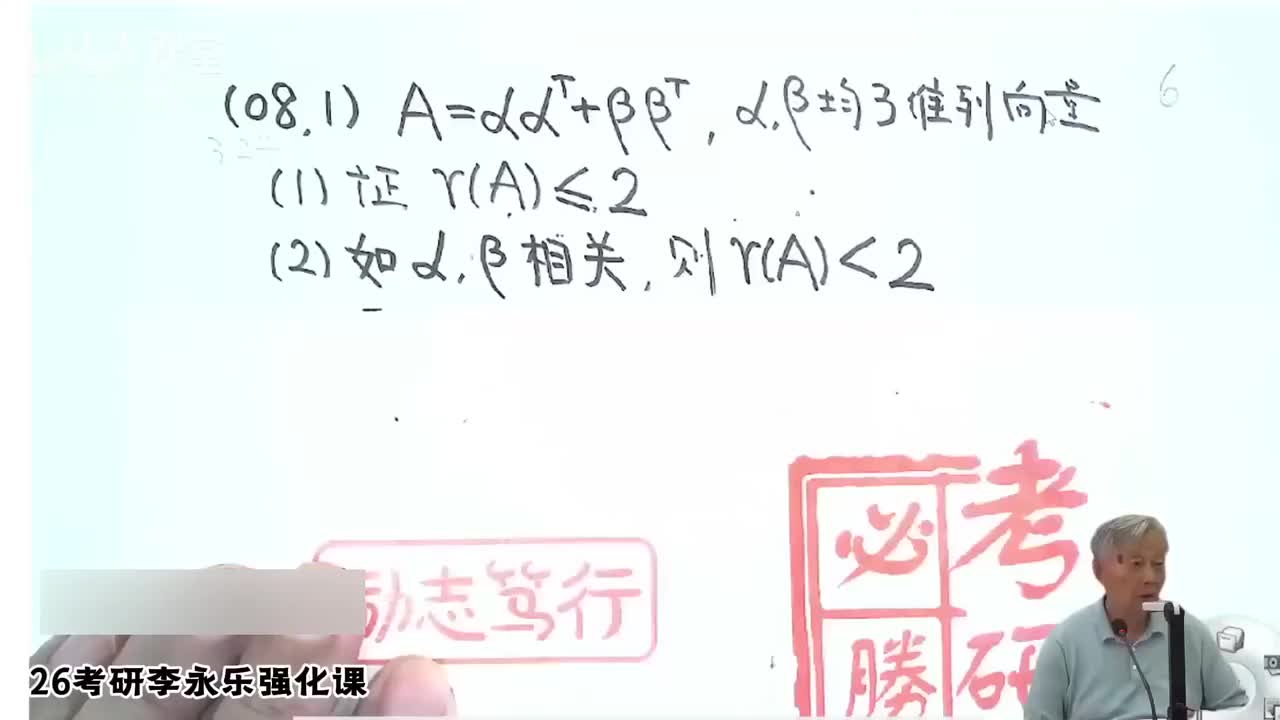 (08,1) A=αα^T+ββ^T, α,β均3维列向量
6
(1) 证 r(A)≤2
(2) 如 α,β 相关, 则 r(A)<2
励志笃行
必考
勝研
26考研李永乐强化课